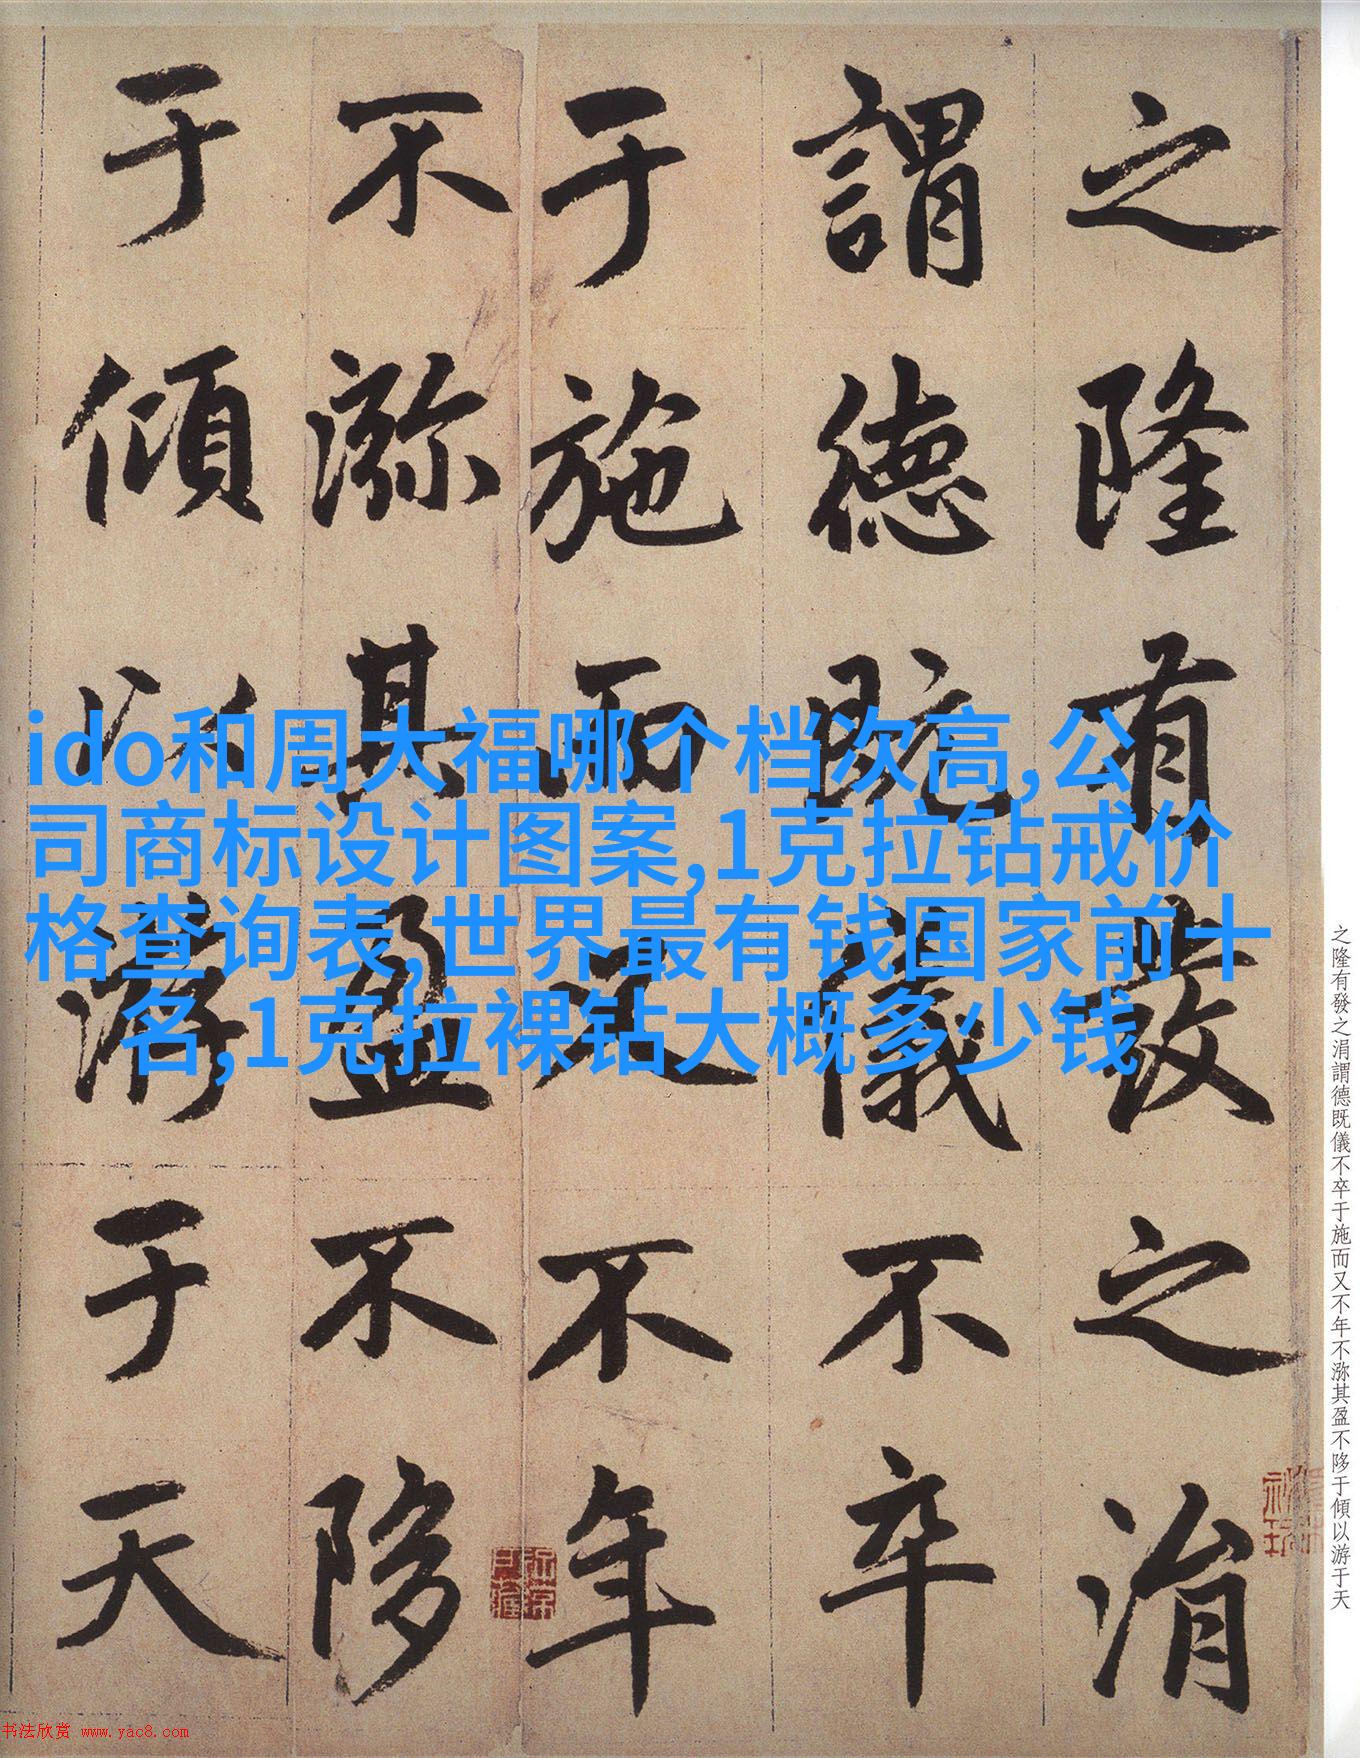 之隆有發之涓
謂德既儀不卒
于施而又不年
不㳽其盈不陊
于傾以游于天
ido和周大福哪个档次高,公
司商标设计图案,1克拉钻戒价
格查询表,世界最有钱国家前十
名,1克拉裸钻大概多少钱
之隆有發之涓謂德既儀不卒于施而又不年不㳽其盈不陊于傾以游于天
书法欣赏 www.yac8.com